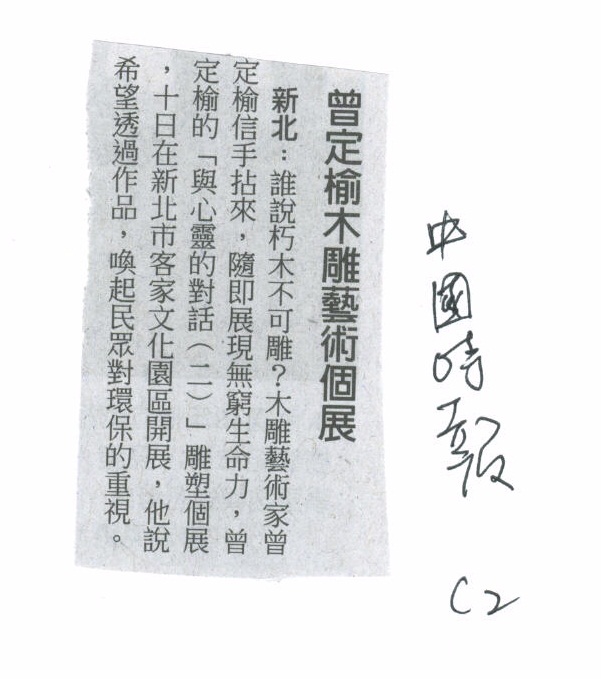 曾定榆木雕藝術個展
新北：誰說朽木不可雕？木雕藝術家曾
定榆信手拈來，隨即展現無窮生命力，曾
定榆的「與心靈的對話（二）」雕塑個展
，十日在新北市客家文化園區開展，他說
希望透過作品，喚起民眾對環保的重視。
中國時報
C2